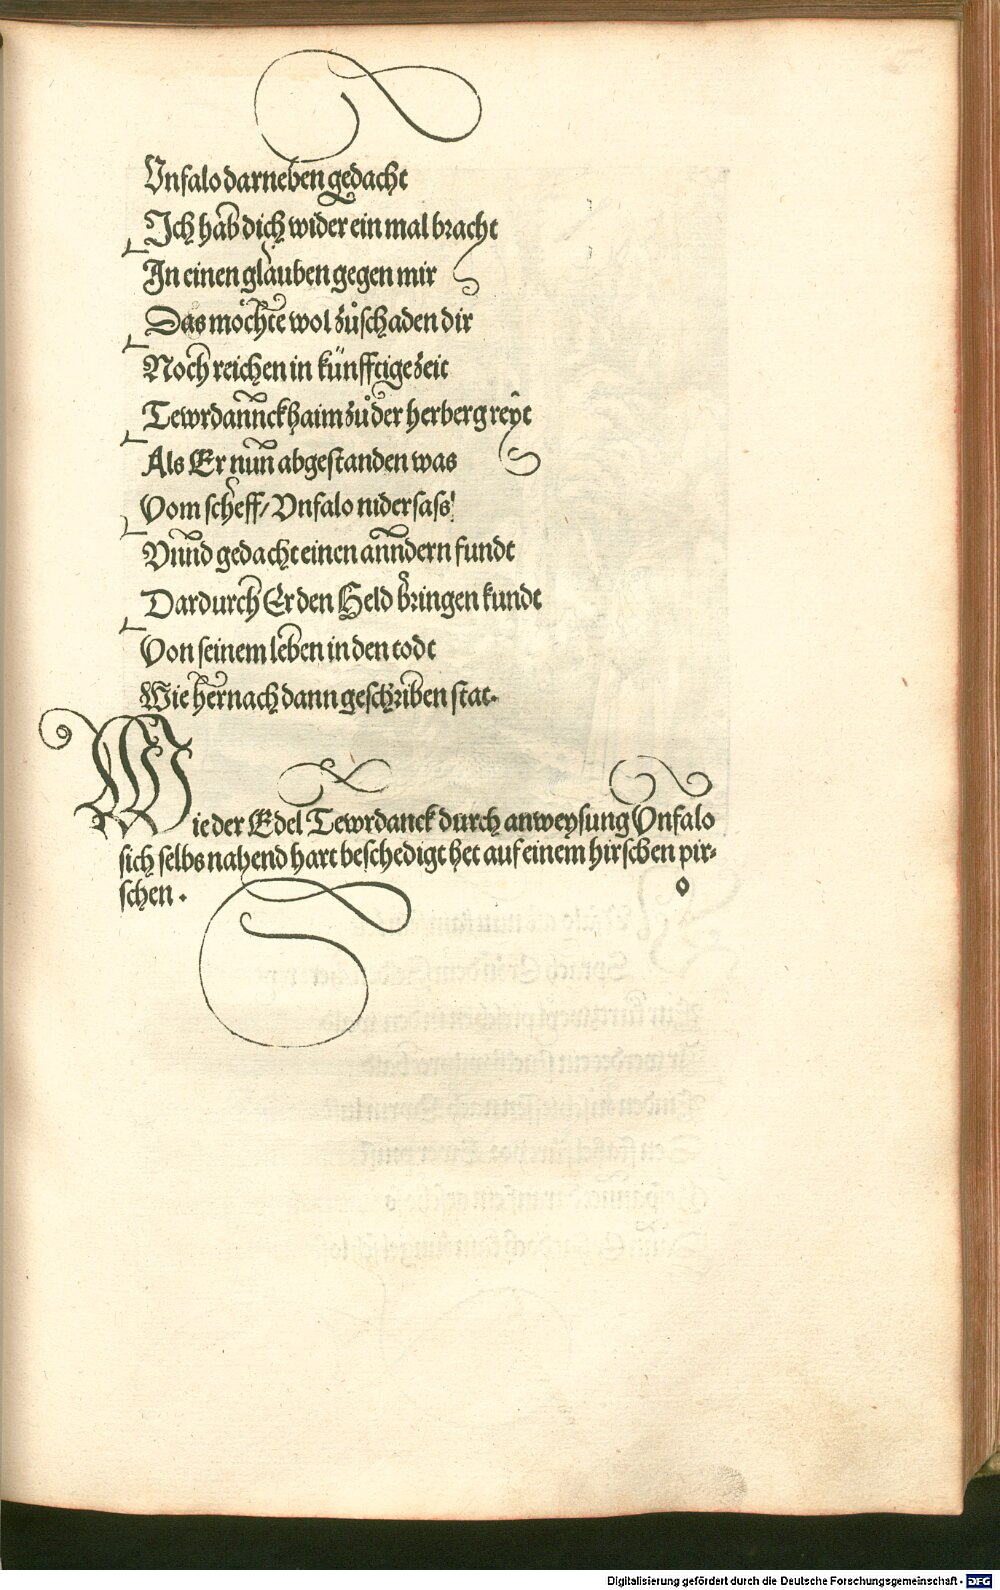 Unfalo darneben gedacht
Ich hab dich wider ein mal bracht
In einen glauben gegen mir
Das möchte wol zůschaden dir
Noch reichen in künfftige zeit
Tewrdannck haim zů der herberg reyt
Als Er nun abgestanden was
Vom scheff/ Unfalo nider sass
Unnd gedacht einen anndern fundt
Dardurch Er den Held bringen kundt
Von seinem leben in den todt
Wie hernach dann geschriben stat.
Wie der Edel Tewrdanck durch anweysung Unfalo
sich selbs nahend hart beschedigt het auf einem hirschen pir-
schen. o
Digitalisierung gefördert durch die Deutsche Forschungsgemeinschaft - DFG